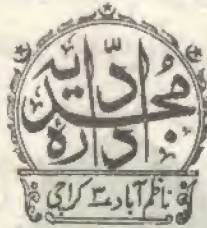 ادارہ مجددیہ
ناظم آباد ۳ کراچی